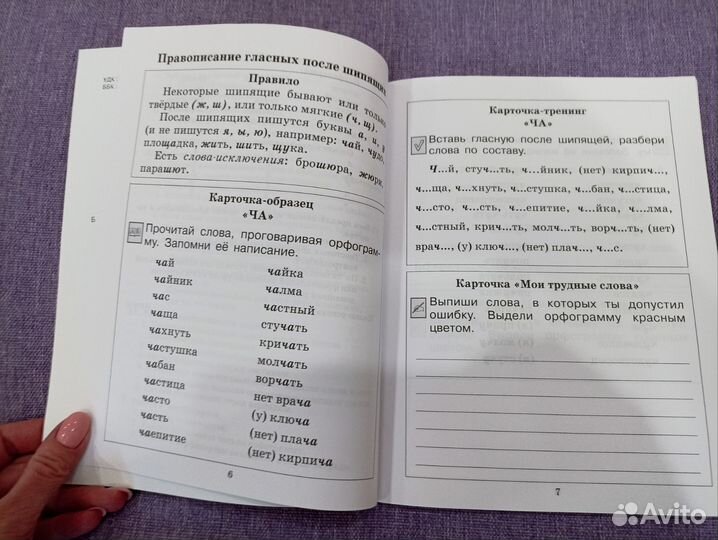 УДК
ББК
Б
Правописание гласных после шипящих
Правило
Некоторые шипящие бывают или только
твёрдые (ж, ш), или только мягкие (ч, щ).
После шипящих пишутся буквы а, и, у
(и не пишутся я, ы, ю), например: чай, чудо,
площадка, жить, шить, щука.
Есть слова-исключения: брошюра, жюри,
парашют.
Карточка-образец
«ЧА»
Прочитай слова, проговаривая орфограм-
му. Запомни её написание.
чай
чайник
час
чаща
чахнуть
частушка
чабан
частица
часто
часть
чаепитие
чайка
чалма
частный
стучать
кричать
молчать
ворчать
нет врача
(у) ключа
(нет) плача
(нет) кирпича
6
Карточка-тренинг
«ЧА»
Вставь гласную после шипящей, разбери
слова по составу.
Ч...й, стуч...ть, ч...йник, (нет) кирпич...,
ч...ща, ч...хнуть, ч...стушка, ч...бан, ч...стица,
ч...сто, ч...сть, ч...епитие, ч...йка, ч...лма,
ч...стный, крич...ть, молч...ть, ворч...ть, (нет)
врач..., (у) ключ..., (нет) плач..., ч...с.
Карточка «Мои трудные слова»
Выпиши слова, в которых ты допустил
ошибку. Выдели орфограмму красным
цветом.
7
Avito